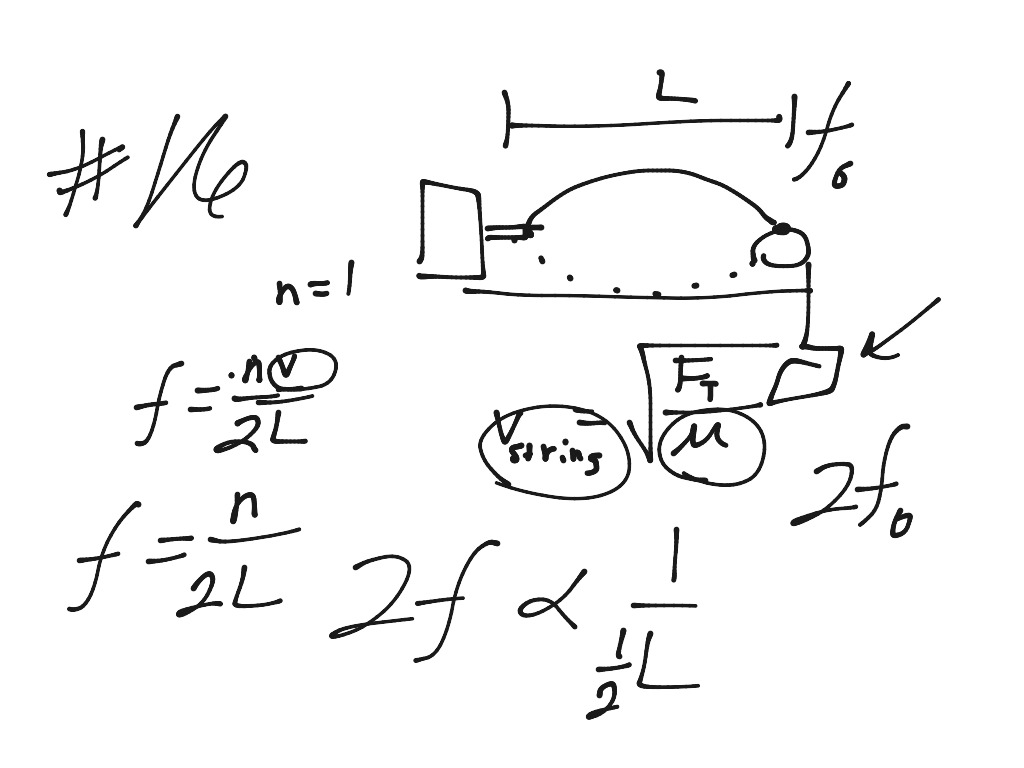 #16
L
f₀
n = 1
f = nv / 2L
v string = √(F_T / μ)
2f₀
f = n / 2L
2f ∝ 1 / ½L